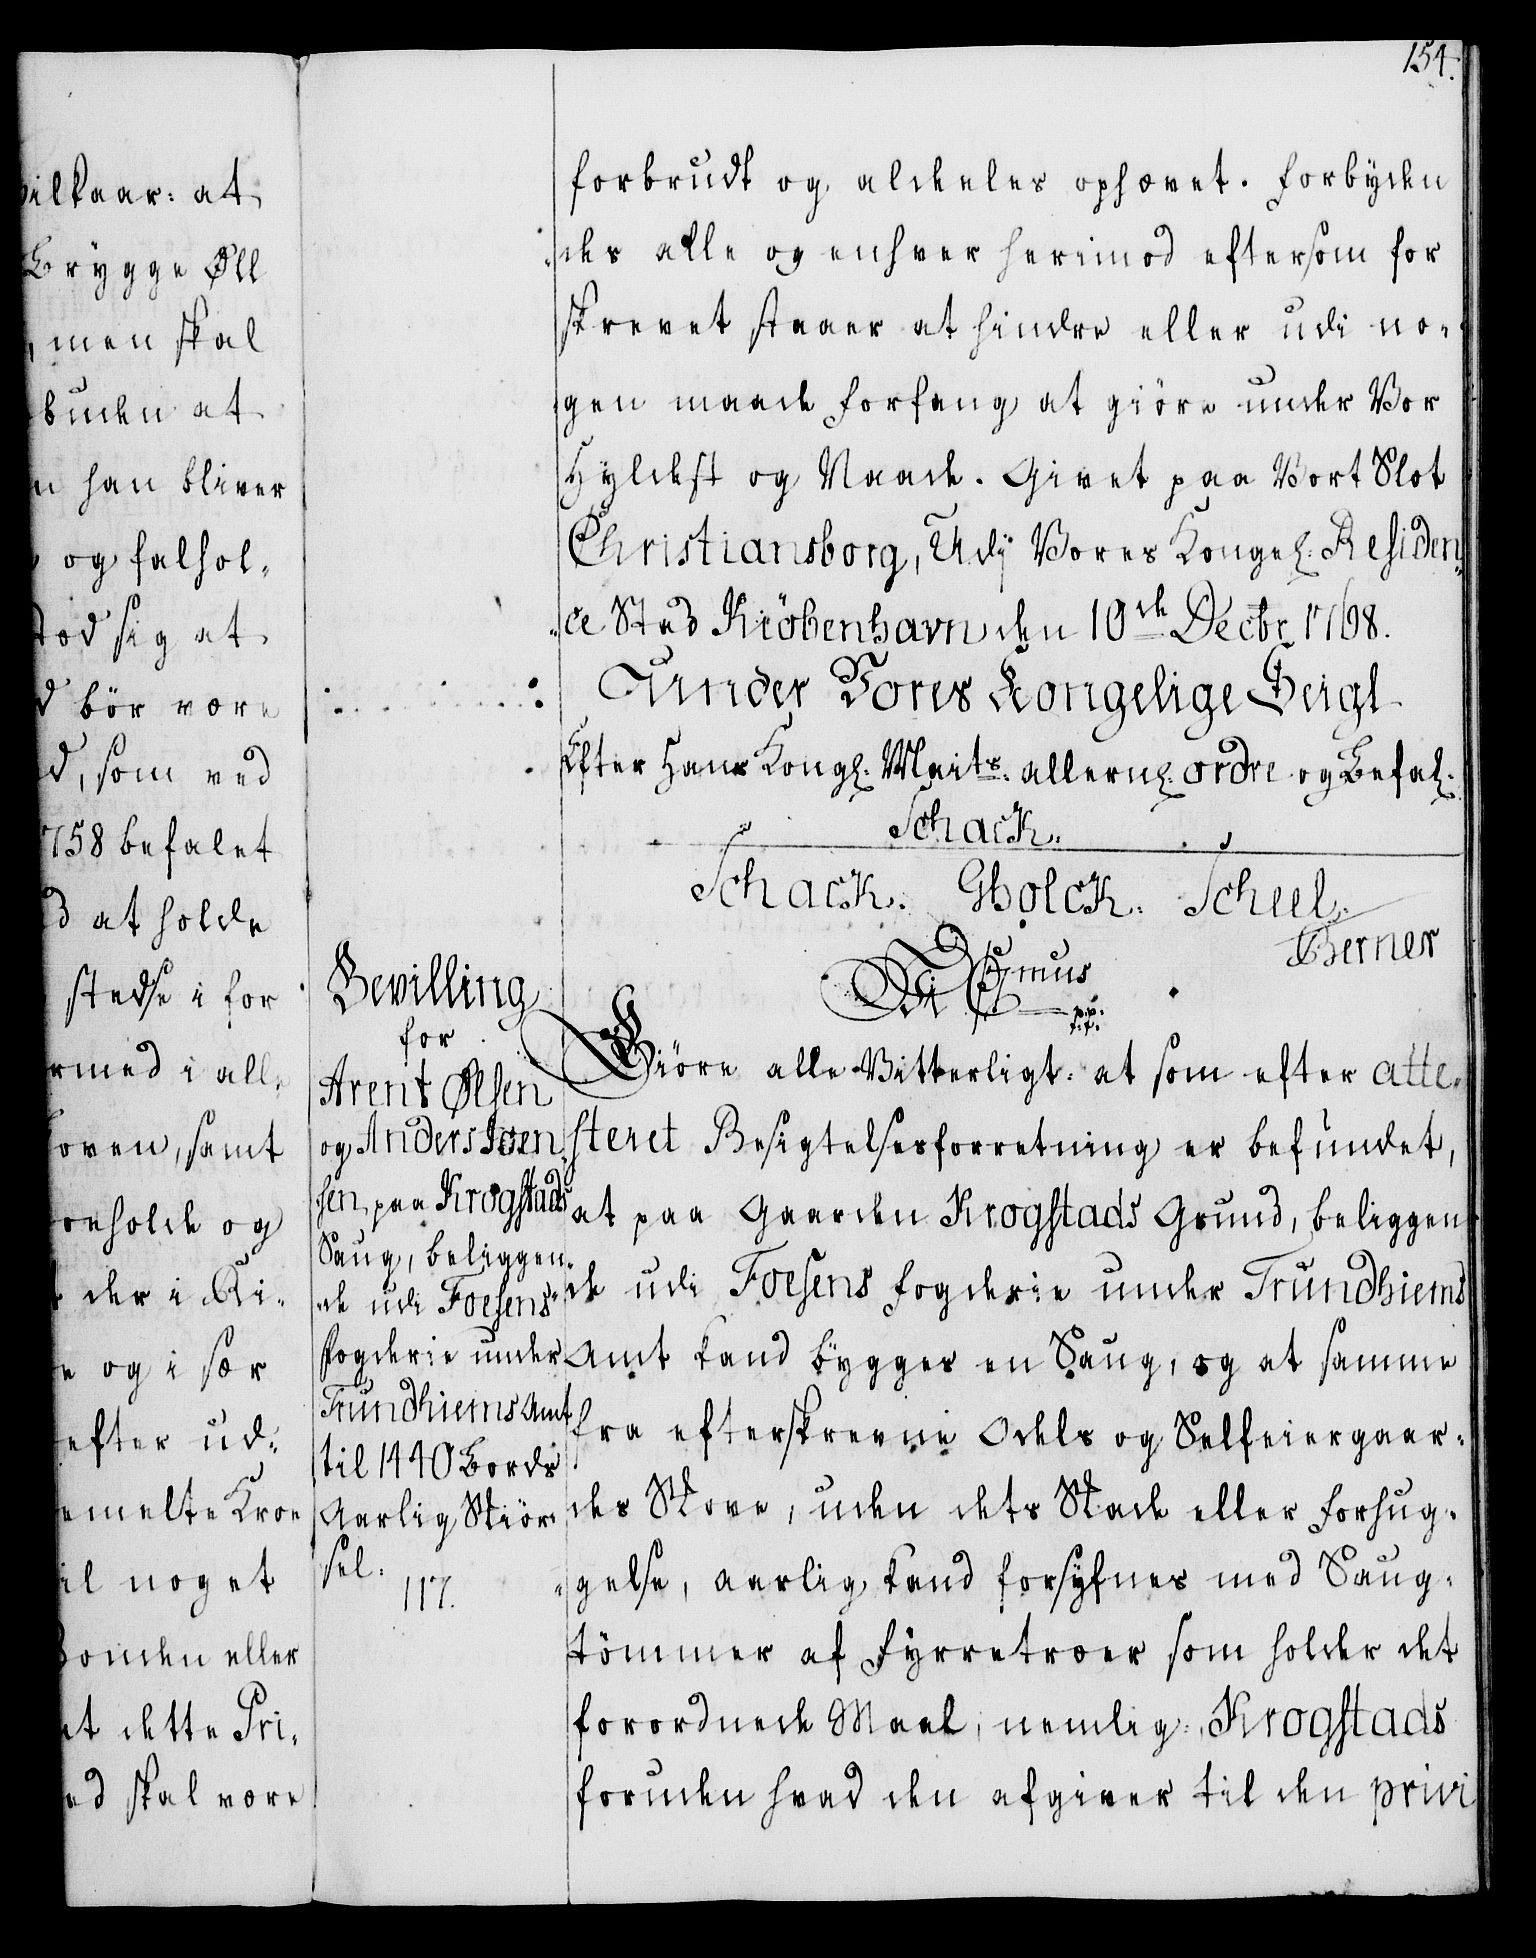 154.
vilkaar: at
Brygge Øll
men skal
buden at
han bliver
og falhol„
tod sig at
bör være
d, som ved
1758 befalet
d at holde
stedse i for
rmed i all„
oven, samt
reholde og
der i Ri„
og i sær
efter ud„
emelte Kroe
il noget
Bonden eller
at dette Pri„
ed skal være
forbrudt og aldeles ophævet. Forbyden
„des alle og enhver herimod eftersom for
skrevet staaer at hindre eller udi no„
gen maade Forfang at giöre under Vor
Hyldest og Naade. Givet paa Vort Slot
Christiansborg, Udj Vores Kongel. Residen„
„ce Stad Kiöbenhavn den 10de Decbr 1768.
Under Vores Kongelige Seigl
Efter Hans Kongl. Maits. allernl. ordre og Befal.
Schack.
Schack. GHolck. Scheel.
Berner
Bevilling
for
Arent Ølsen
og Anders Iven
sen paa Krogstads
Saug, beliggen„
„de udi Foesens
Fogderie under
Trundhiems Amt
til 1440 Bords
Aarlig Skiör„
sel.
117.
Vi C 7mus
p: p:
t: t:
Giöre alle Vitterligt: at som efter atte„
steret Besigtelsesforretning er befundet,
at paa Gaarden Krogstads Grund, beliggen
de udi Foesens Fogderie under Trundhiems
Amt kand bygges en Saug, og at samme
fra efterskrevne Odels og Selfeiergaar„
des Skove, uden dets Skade eller Forhug„
„gelse, aarlig kand forsyfnes med Saug„
tömmer af Fyrretræer som holder det
forordnede Maal, nemlig: Krogstads
foruden hvad den afgiver til den privi